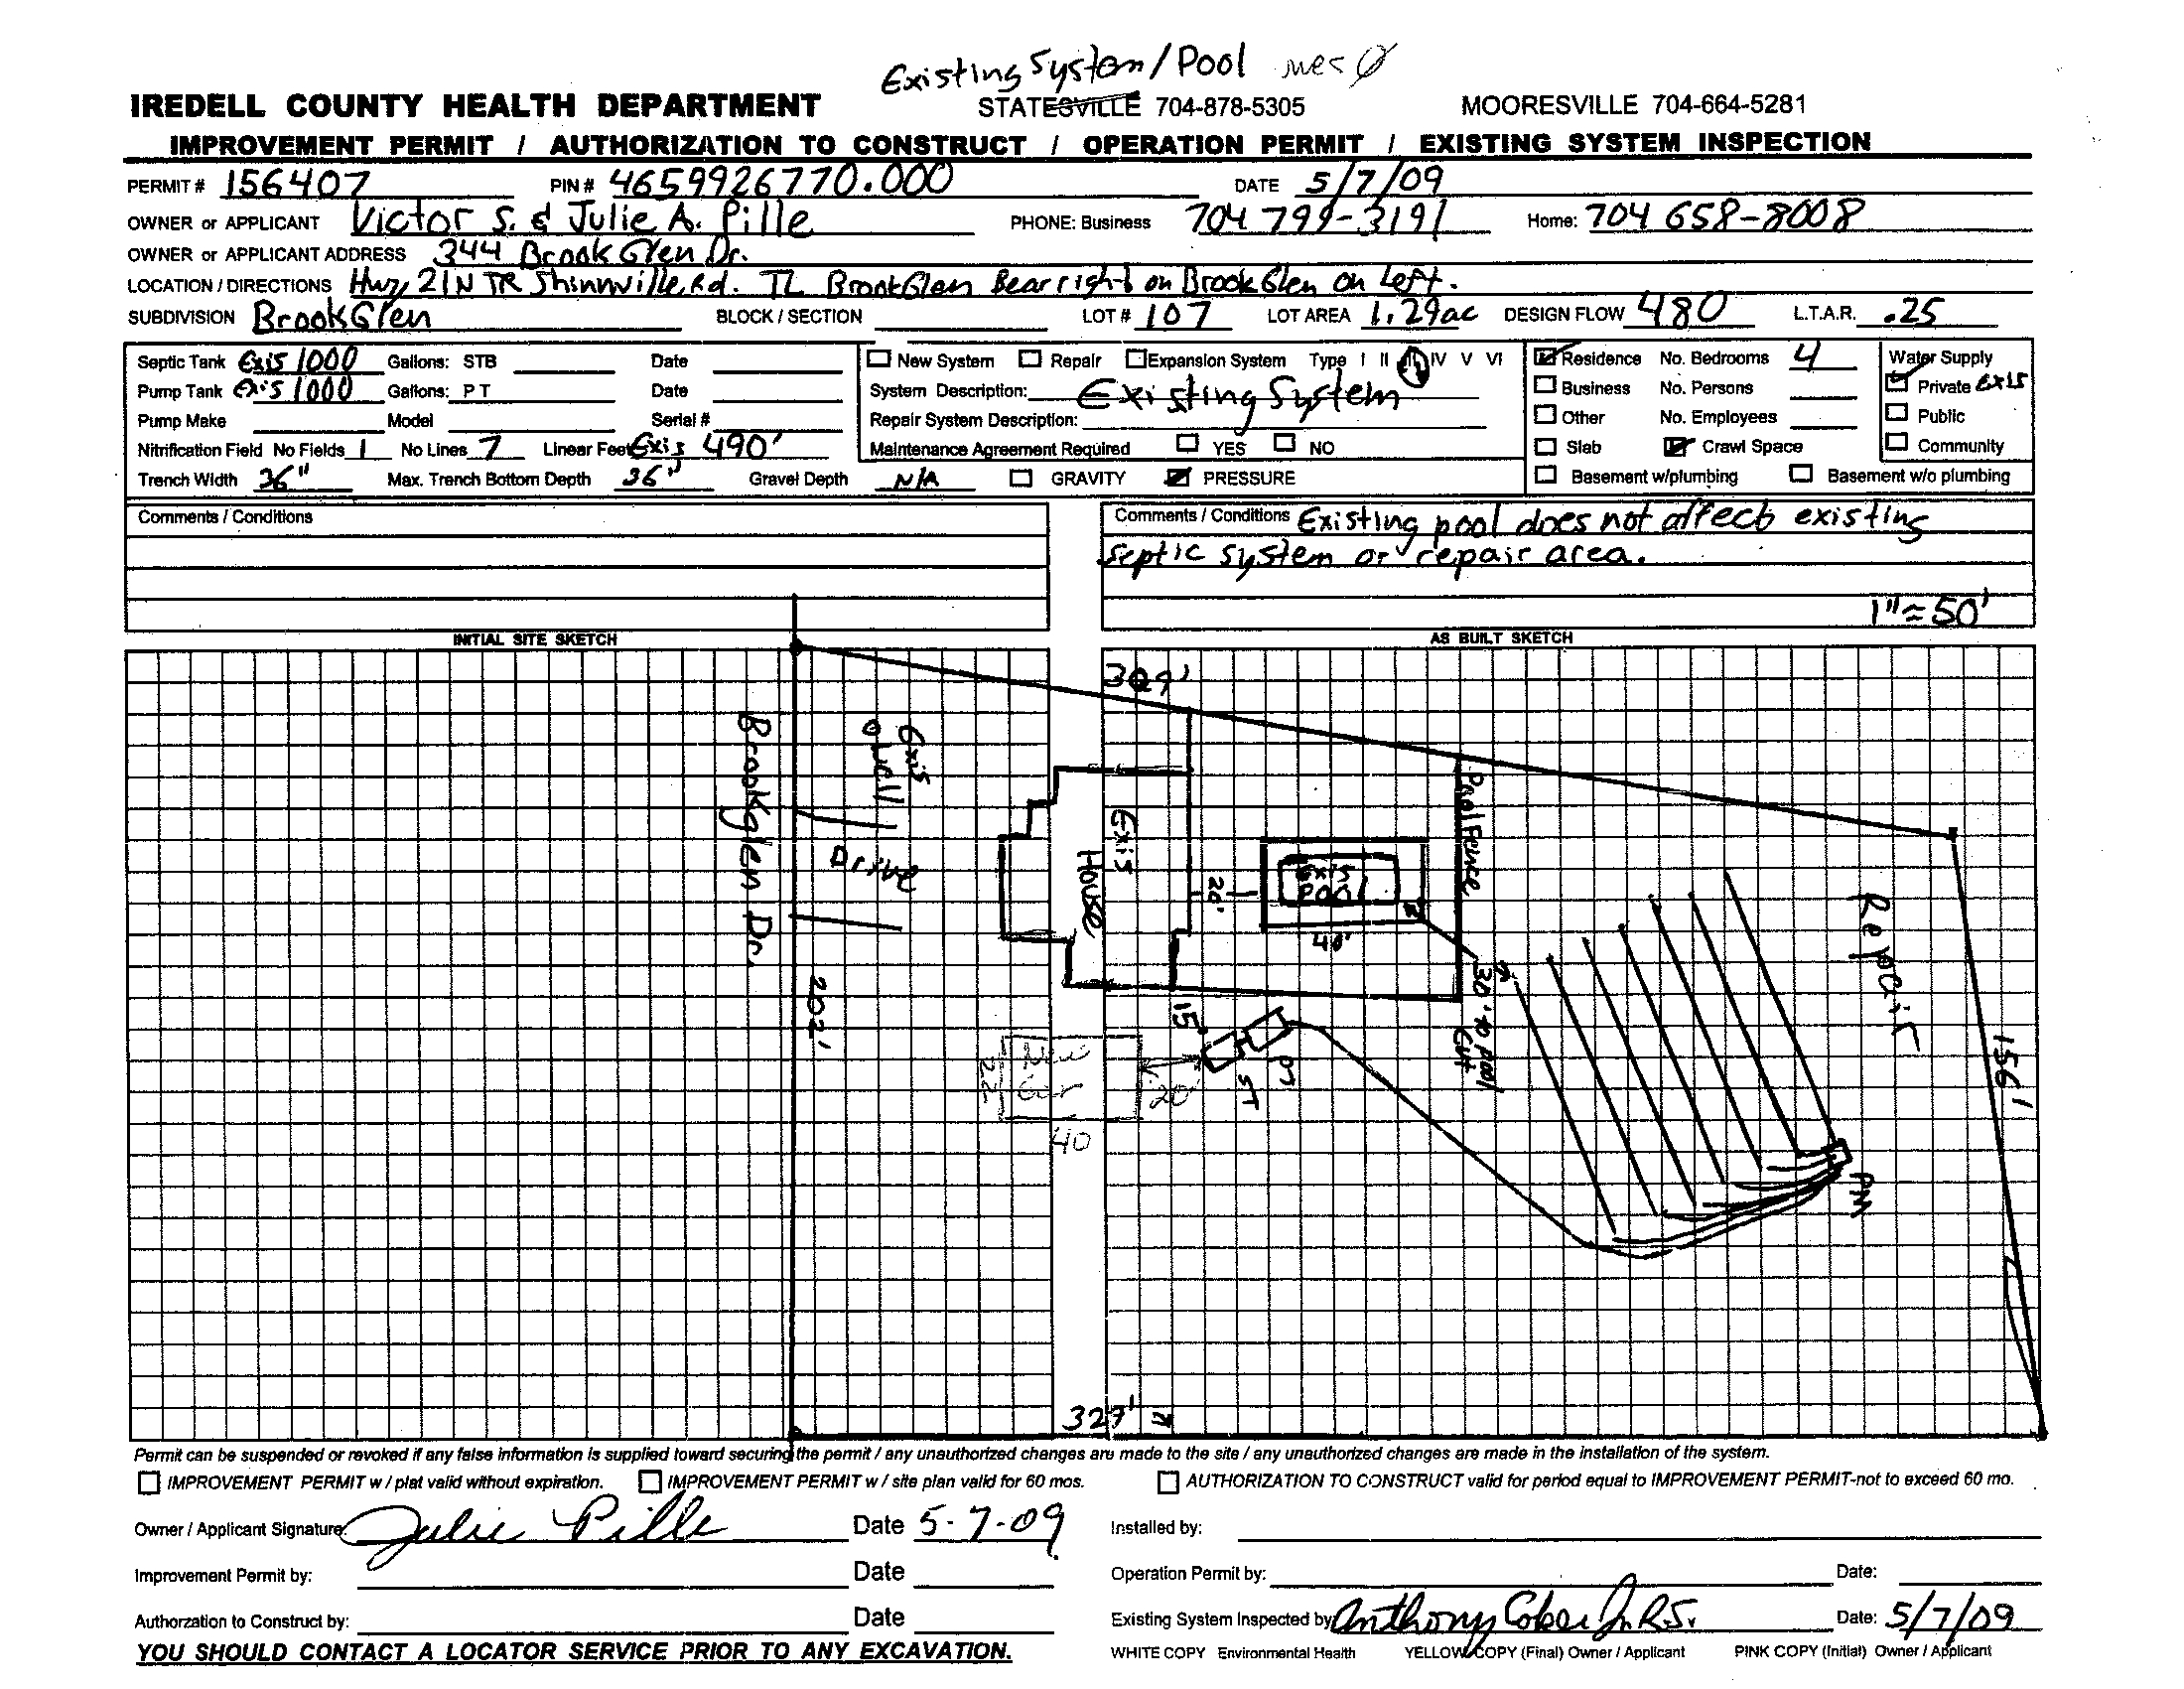 Existing System/Pool
IREDELL COUNTY HEALTH DEPARTMENT STATESVILLE 704-878-5305 MOORESVILLE 704-664-5281
IMPROVEMENT PERMIT / AUTHORIZATION TO CONSTRUCT / OPERATION PERMIT / EXISTING SYSTEM INSPECTION
PERMIT # 156407 PIN # 4659926770.000 DATE 5/7/09
OWNER or APPLICANT Victor S. & Julie A. Pille PHONE: Business 704 799-3191 Home: 704 658-8008
OWNER or APPLICANT ADDRESS 344 Brook Glen Dr.
LOCATION / DIRECTIONS Hwy 21N TR Shinnville Rd. TL BrookGlen Bear right on Brook Glen on Left.
SUBDIVISION BrookGlen BLOCK / SECTION LOT # 107 LOT AREA 1.29ac DESIGN FLOW 480 L.T.A.R. .25
Septic Tank Exis 1000 Gallons: STB Date
Pump Tank Exis 1000 Gallons: PT Date
Pump Make Model Serial #
Nitrification Field No Fields 1 No Lines 7 Linear Feet Exis 490'
Trench Width 36" Max. Trench Bottom Depth 36" Gravel Depth N/A GRAVITY PRESSURE
New System Repair Expansion System Type I II III IV V VI
System Description: Existing System
Repair System Description:
Maintenance Agreement Required YES NO
Residence No. Bedrooms 4
Business No. Persons
Other No. Employees
Slab Crawl Space
Basement w/plumbing Basement w/o plumbing
Water Supply
Private Exis
Public
Community
Comments / Conditions
Comments / Conditions Existing pool does not affect existing
septic system or repair area.
1"=50'
INITIAL SITE SKETCH
AS BUILT SKETCH
309'
Brookglen Dr.
Exis
well
Drive
202'
Exis
House
20'
Exis
Pool
40'
Pool Fence
30' to pool
Cut
Repair
156'
15'
ST
PT
New
Gar
22
20'
40
PM
327'
Permit can be suspended or revoked if any false information is supplied toward securing the permit / any unauthorized changes are made to the site / any unauthorized changes are made in the installation of the system.
IMPROVEMENT PERMIT w / plat valid without expiration. IMPROVEMENT PERMIT w / site plan valid for 60 mos. AUTHORIZATION TO CONSTRUCT valid for period equal to IMPROVEMENT PERMIT-not to exceed 60 mo.
Owner / Applicant Signature: Julie Pille Date 5-7-09 Installed by:
Improvement Permit by: Date Operation Permit by: Date:
Authorzation to Construct by: Date Existing System Inspected by Anthony Jr. R.S. Date: 5/7/09
YOU SHOULD CONTACT A LOCATOR SERVICE PRIOR TO ANY EXCAVATION.
WHITE COPY Environmental Health YELLOW COPY (Final) Owner / Applicant PINK COPY (Initial) Owner / Applicant